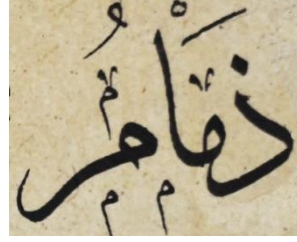 ذمَامُ